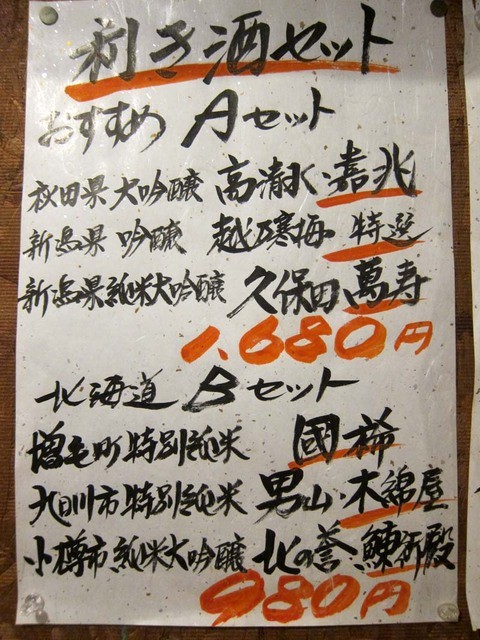 利き酒セット
おすすめ Aセット
秋田県 大吟醸 高清水・嘉兆
新潟県 吟醸 越乃寒梅 特選
新潟県純米大吟醸 久保田、萬寿
1,680円
北海道 Bセット
増毛町 特別純米 國稀
旭川市 特別純米 男山・木綿屋
小樽市 純米大吟醸 北の誉・鰊御殿
980円